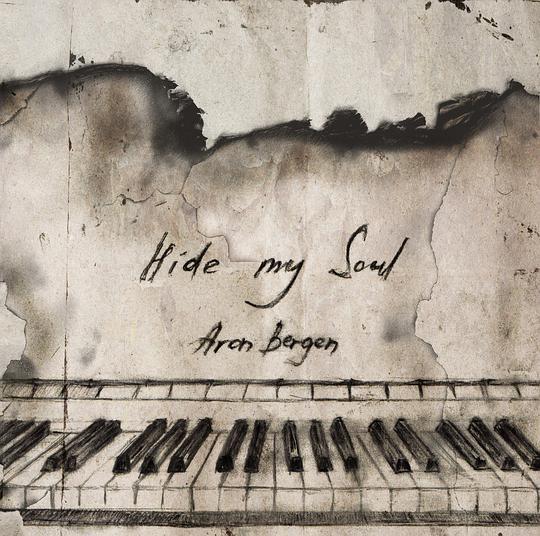 Hide my Soul
Aron Bergen